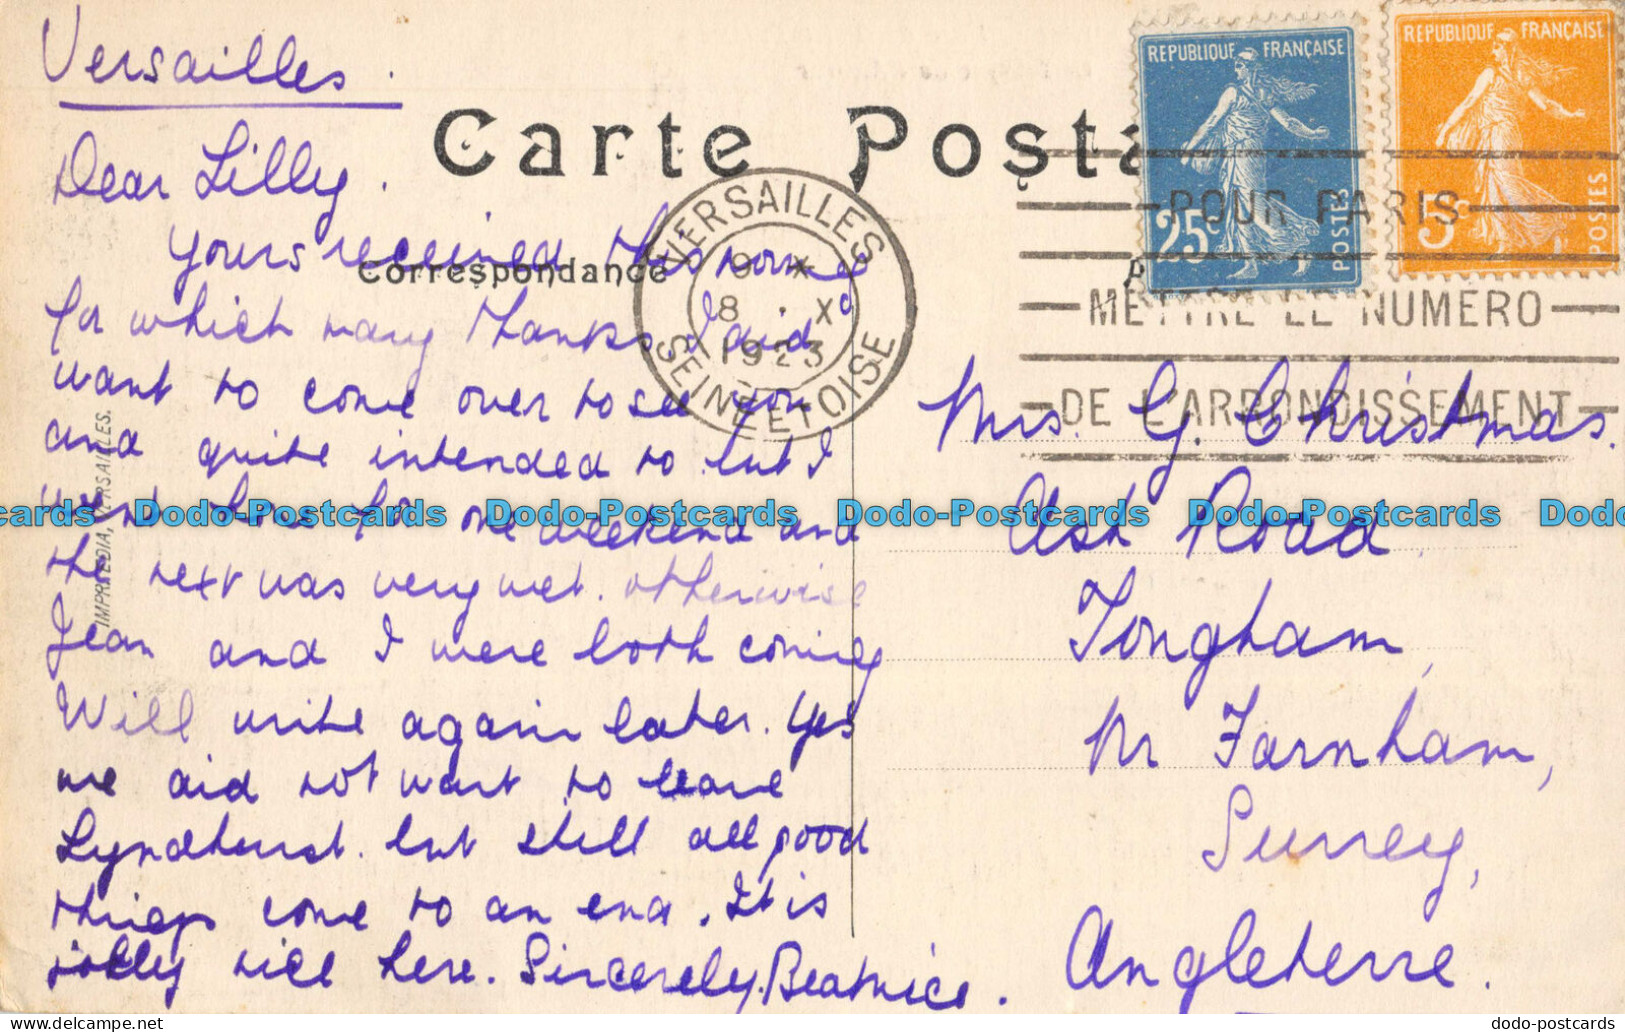 Versailles.
Dear Lilly.
Yours received this morning
for which many thanks. I did
want to come over to see you
and quite intended to but I
went home for one weekend and
the next was very wet. otherwise
Jean and I were both coming
Will write again later. Yes
we did not want to leave
Lyndhurst. but still all good
things come to an end. It is
jolly nice here. Sincerely. Beatrice.
Carte Posta
Correspondance
IMPR. VERSAILLES.
VERSAILLES
9 *
8 X
1923
SEINE ET OISE
REPUBLIQUE FRANÇAISE
25c
POSTES
REPUBLIQUE FRANÇAISE
5c
POSTES
POUR PARIS
METTRE LE NUMERO
DE L'ARRONDISSEMENT
Mrs. G. Christmas.
Ash Road,
Tongham,
Nr Farnham,
Surrey,
Angleterre.
cards Dodo-Postcards Dodo-Postcards Dodo-Postcards Dodo-Postcards Dodo
dodo-postcards